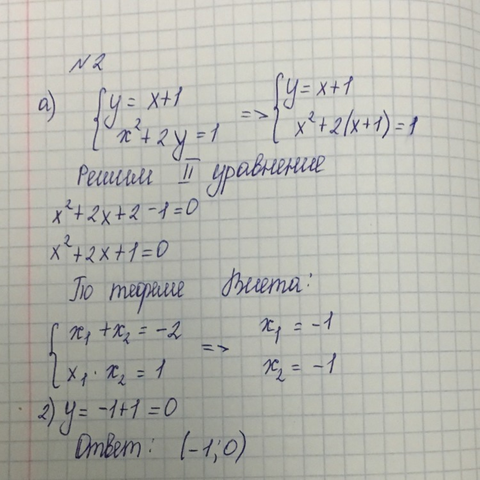 N2
а) { y = x+1 => { y = x+1
x²+2y=1 x²+2(x+1)=1
Решим II уравнение
x²+2x+2-1=0
x²+2x+1=0
По теореме Виета:
{ x₁+x₂=-2 => x₁=-1
x₁·x₂=1 x₂=-1
2) y=-1+1=0
Ответ: (-1;0)